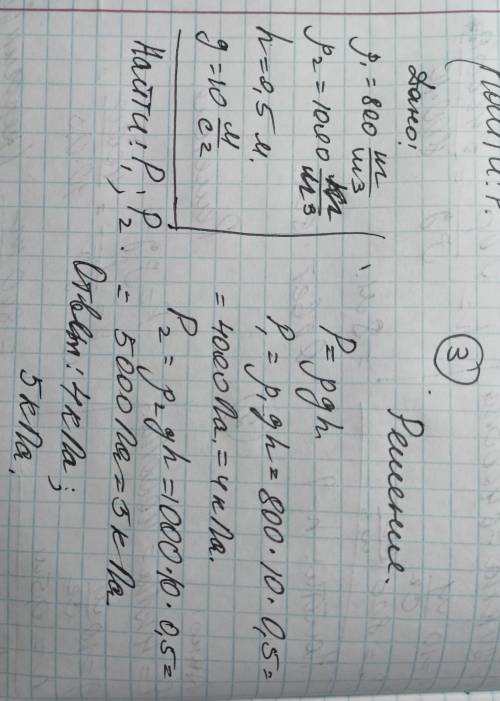 Найти: P.
③
Дано:
ρ₁ = 800 кг/м3
ρ2 = 1000 кг/м3
h = 0,5 м.
g = 10 м/с2
Найти: P₁; P2.
Решение.
P = ρgh
P₁ = ρ₁gh = 800 · 10 · 0,5 =
= 4000 Па = 4 кПа.
P2 = ρ2gh = 1000 · 10 · 0,5 =
= 5000 Па = 5 кПа
Ответ: 4 кПа;
5 кПа.